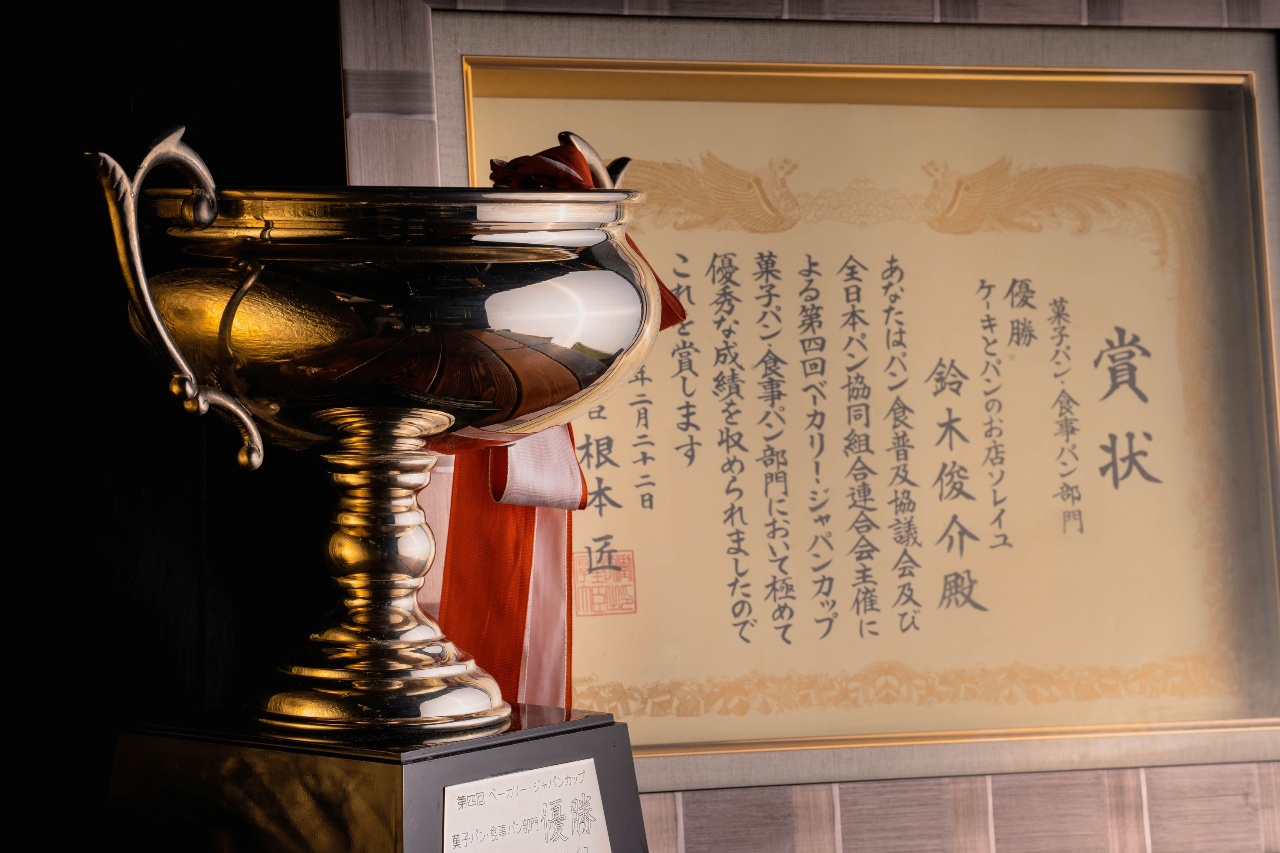 賞状
菓子パン・食事パン部門
優勝
ケーキとパンのお店ソレイユ
鈴木俊介殿
あなたはパン食普及協議会及び
全日本パン協同組合連合会主催に
よる第四回ベーカリー・ジャパンカップ
菓子パン・食事パン部門において極めて
優秀な成績を収められましたので
これを賞します
年二月二十二日
根本匠
第四回 ベーカリー・ジャパンカップ
菓子パン・食事パン部門 優勝